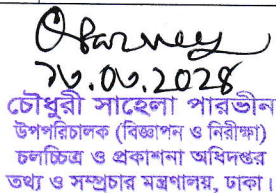 ১৩.০৩.2024
চৌধুরী সাহেলা পারভীন
উপপরিচালক (বিজ্ঞাপন ও নিরীক্ষা)
চলচ্চিত্র ও প্রকাশনা অধিদপ্তর
তথ্য ও সম্প্রচার মন্ত্রণালয়, ঢাকা।